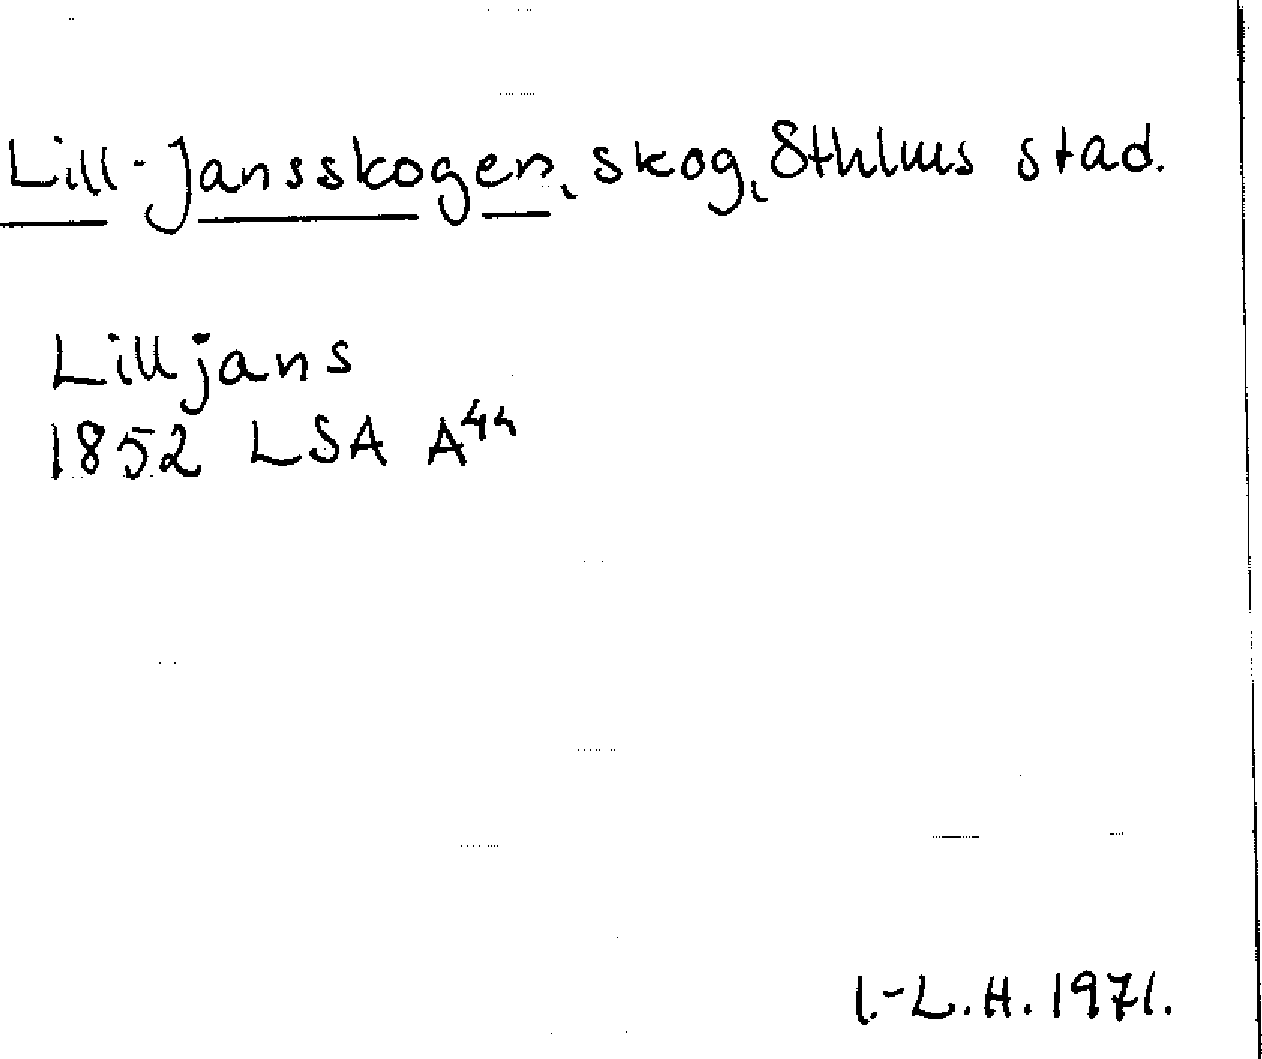 Lill-Jansskogen, skog, Sthlms stad.
Lilljans
1852 LSA A44
I.-L.H. 1971.